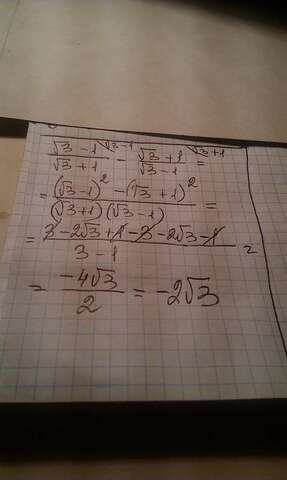 (√3 - 1)/(√3 + 1) ^(√3-1) - (√3 + 1)/(√3 - 1) ^(√3+1) =
= ((√3-1)² - (√3 + 1)²)/((√3+1)(√3-1)) =
= (3 - 2√3 + 1 - 3 - 2√3 - 1)/(3 - 1) =
= (-4√3)/2 = -2√3